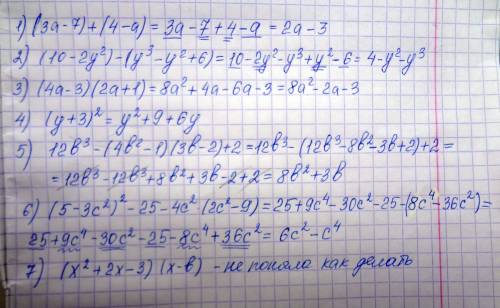 1) (3a-7)+(4-a)=3a-7+4-a=2a-3
2) (10-2y²)-(y³-y²+6)=10-2y²-y³+y²-6=4-y²-y³
3) (4a-3)(2a+1)=8a²+4a-6a-3=8a²-2a-3
4) (y+3)²=y²+9+6y
5) 12b³-(4b²-1)(3b-2)+2=12b³-(12b³-8b²-3b+2)+2=
=12b³-12b³+8b²+3b-2+2=8b²+3b
6) (5-3c²)²-25-4c²(2c²-9)=25+9c⁴-30c²-25-(8c⁴-36c²)=
25+9c⁴-30c²-25-8c⁴+36c²=6c²-c⁴
7) (x²+2x-3)(x-b) - не поняла как делать